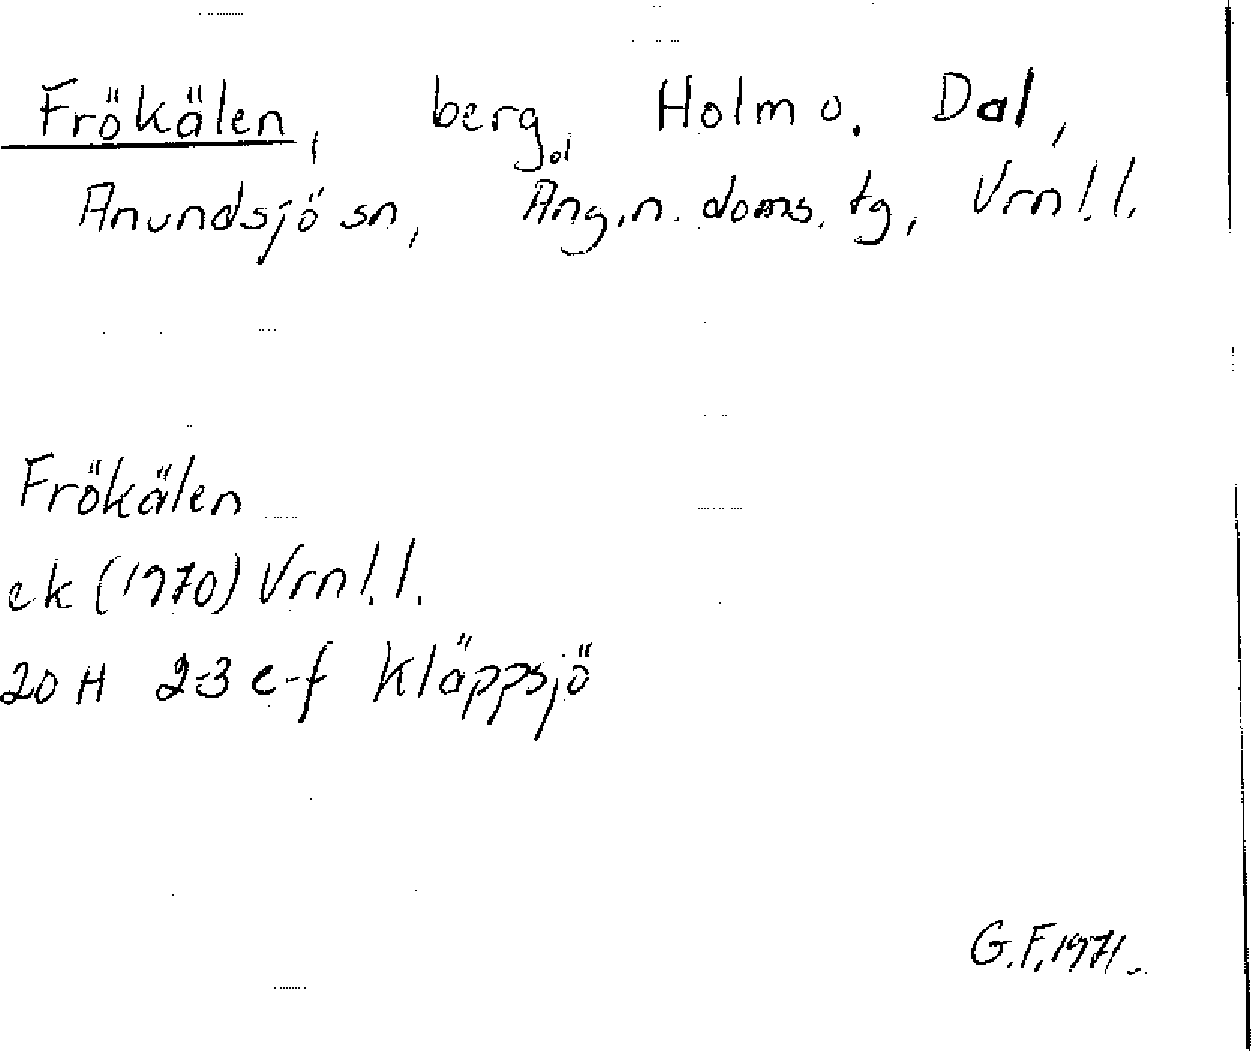 Frökälen, berg, Holm o. Dal,
Anundsjö sn, Ång.n. doms. tg, Vrnl. l.
Frökälen
ek (1970) Vrnl. l.
20 H 2-3 e-f Kläppsjö
G.F. 1971.